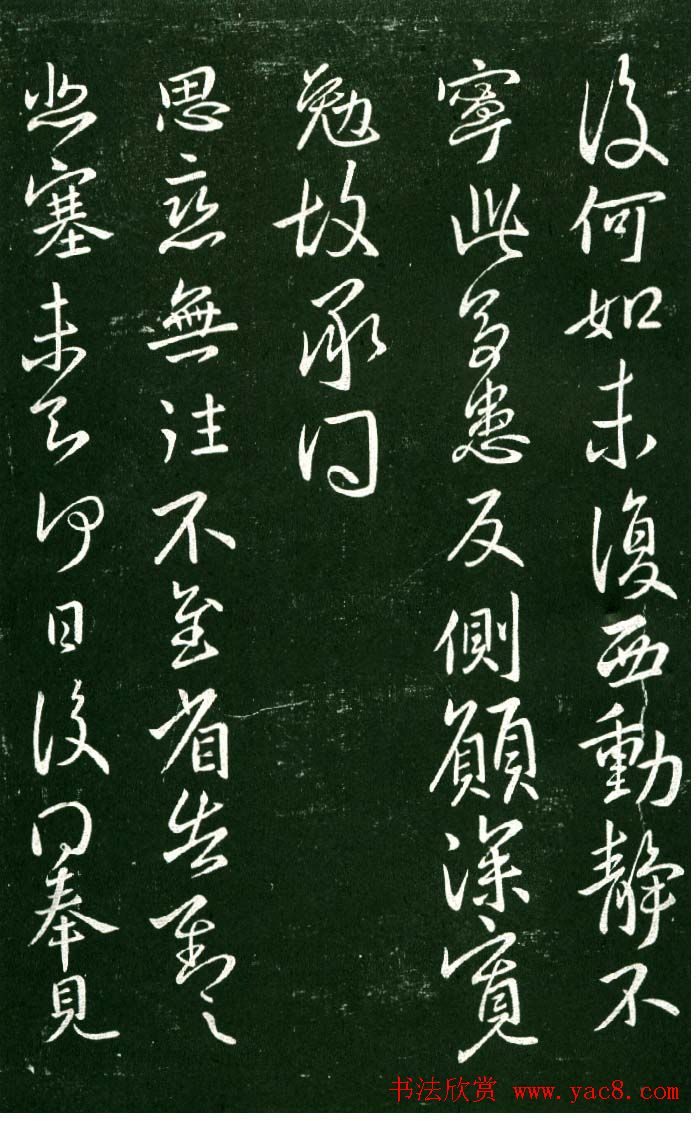 復何如未復西動靜不
寧此多患反側願深寬
勉故承問
思戀無往不至省告對之
悲塞未知何日復得奉見
书法欣赏 www.yac8.com